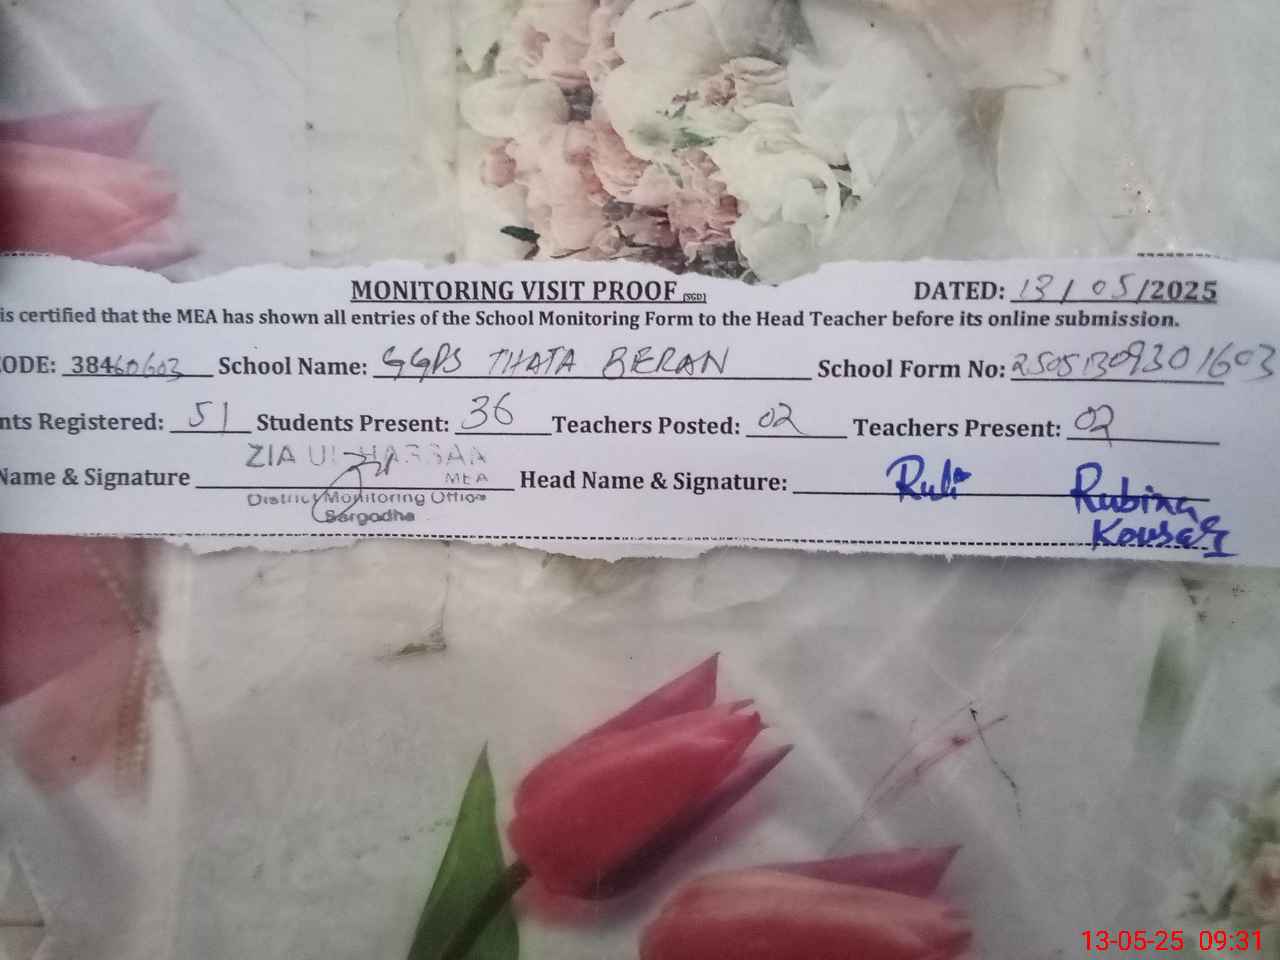 MONITORING VISIT PROOF (SGD) DATED: 13/05/2025
is certified that the MEA has shown all entries of the School Monitoring Form to the Head Teacher before its online submission.
ODE: 38460603 School Name: GGPS THATA BERAN School Form No: 25051309301603
nts Registered: 51 Students Present: 36 Teachers Posted: 02 Teachers Present: 02
Name & Signature ZIA UL HASSAN Head Name & Signature: Rubina
MEA Kousar
District Monitoring Office
Sargodha
13-05-25 09:31